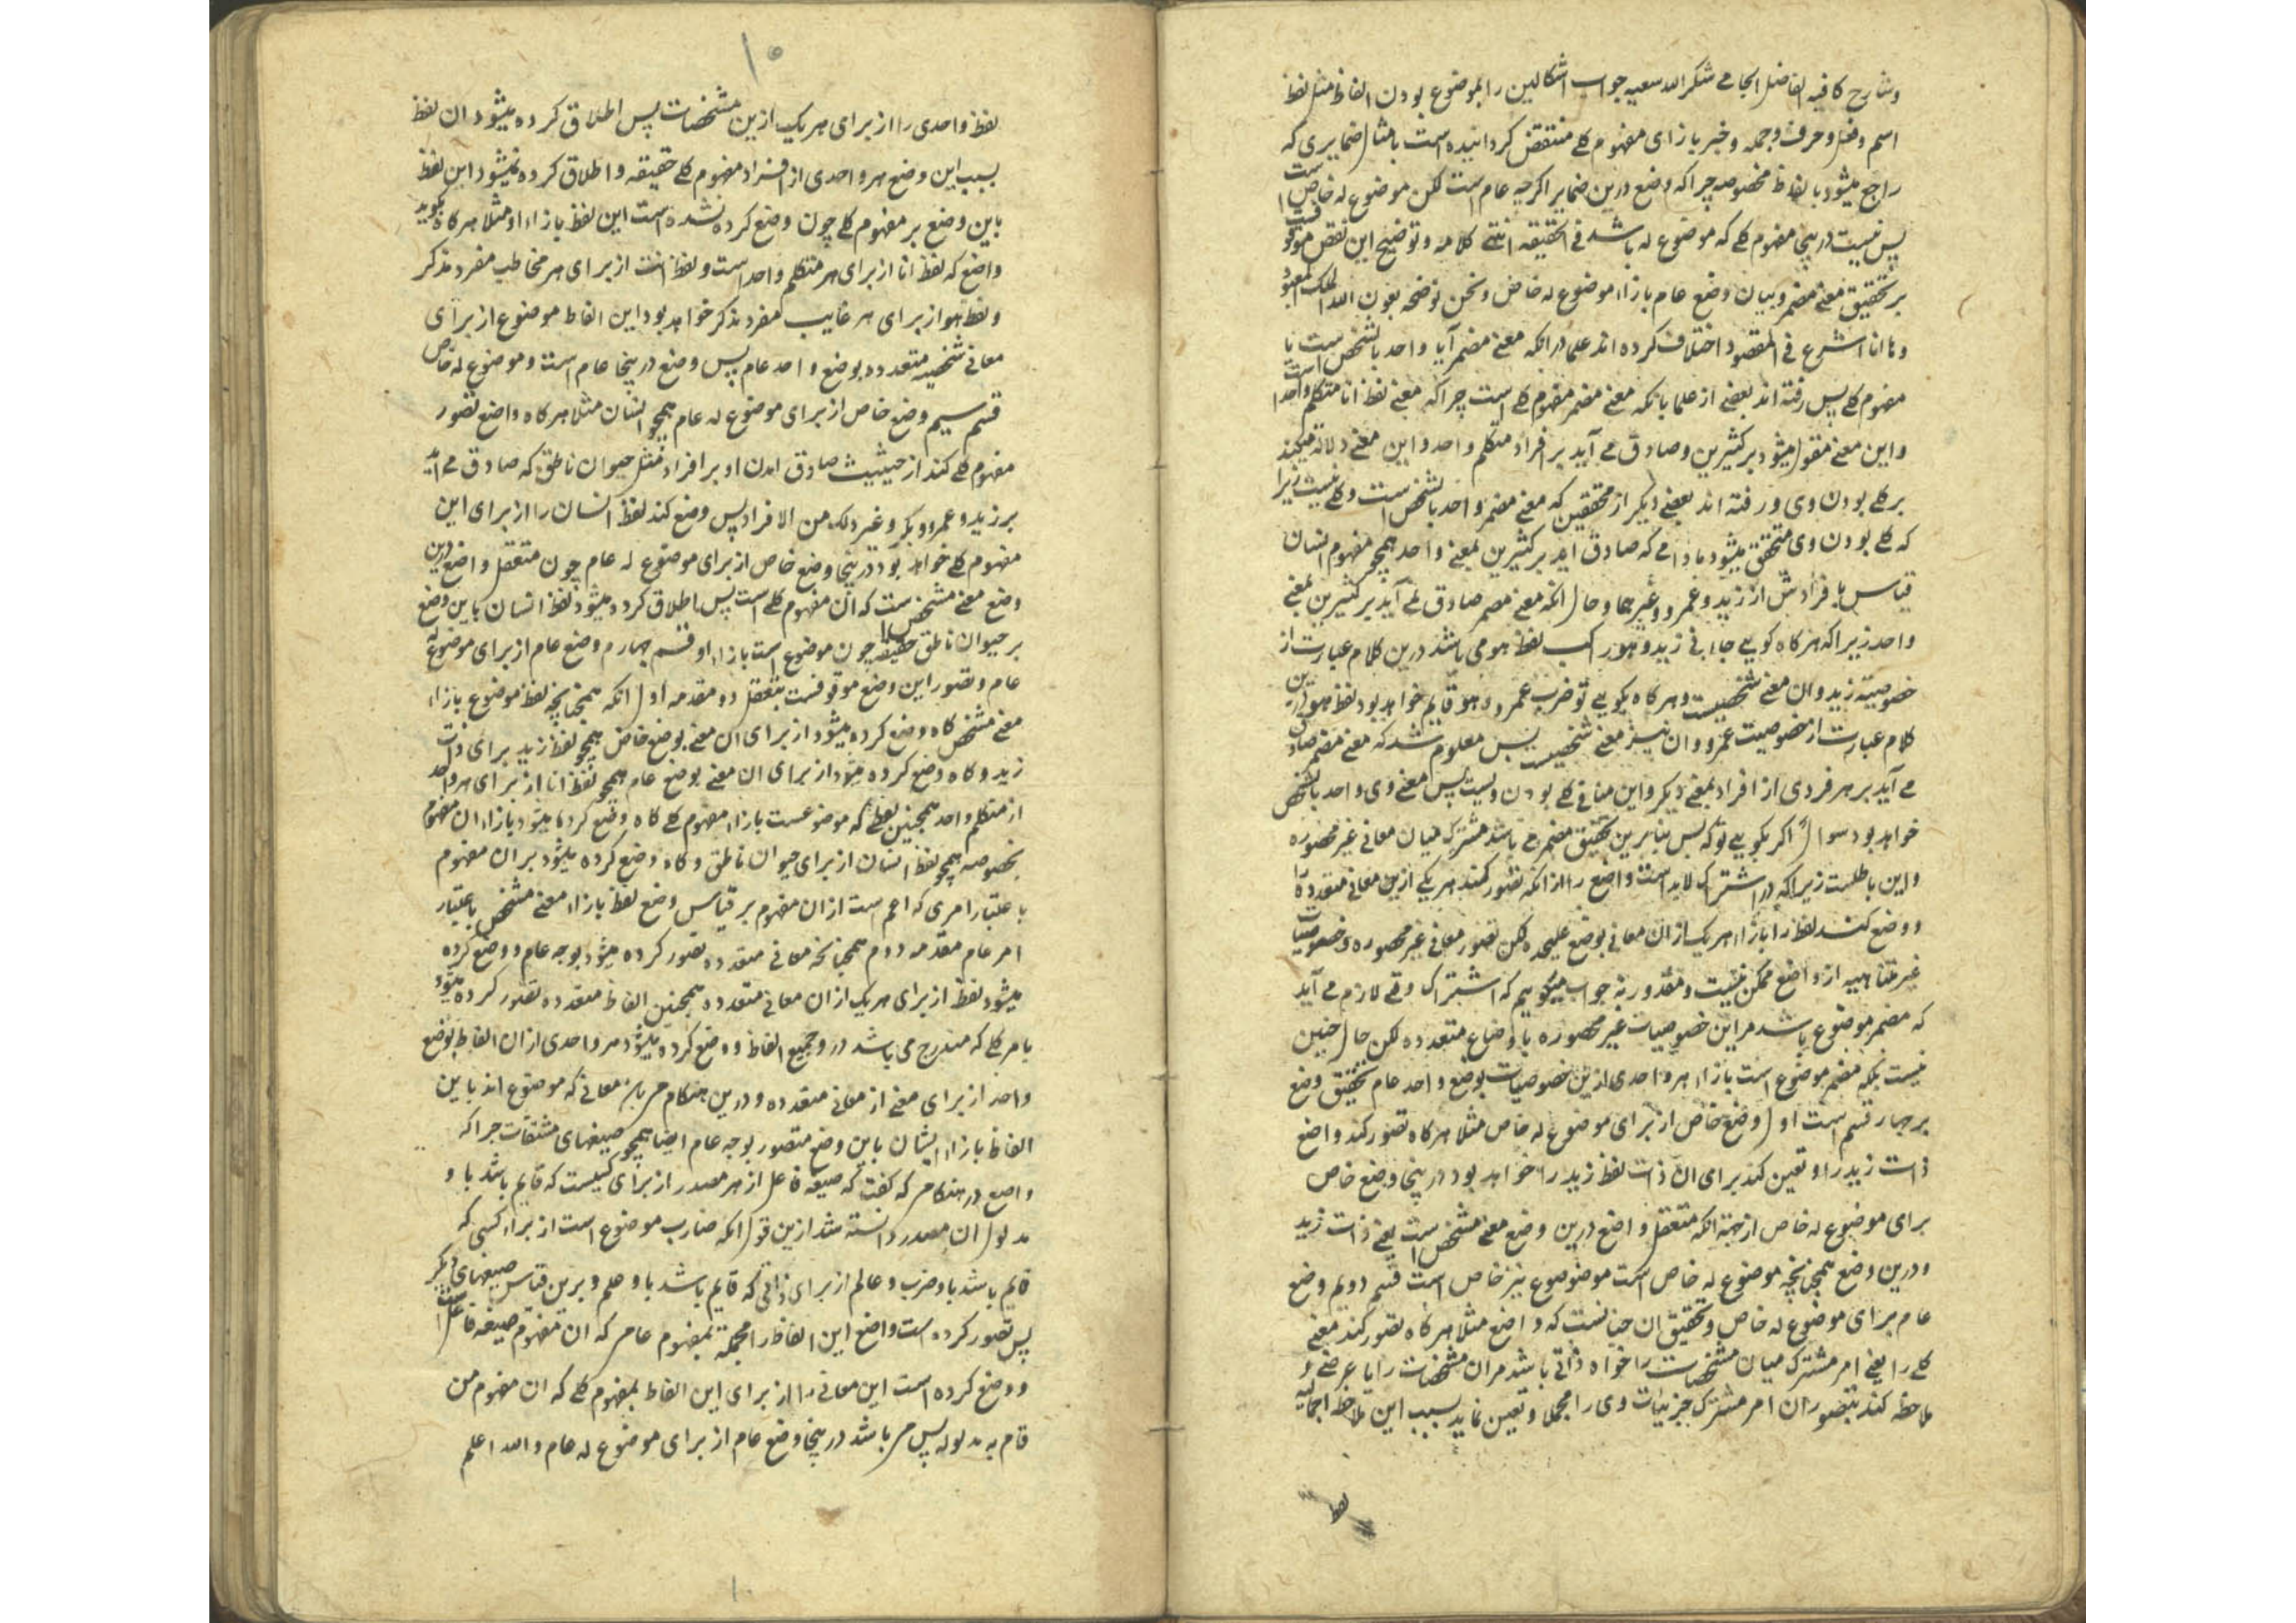 وشارح کافیه الفاضل الجامے شکر الله سعیه جواب اشکالین را بموضوع بودن الفاظ مثل لفظ
اسم وفعل وحرف وجمله وخبر بازای مفهوم کلے منتقض کردانیده است بامثال ضمایری که
راجع میشود بالفاظ مخصوصه چراکه وضع درین ضمایر اکرچه عام است لکن موضوع له خاص است
پس نیست درینجا مفهوم کلے که موضوع له باشد فے الحقیقه انتهے کلامه وتوضیح این نقض موقوفست
بر تحقیق معنے مضمر وبیان وضع عام بازاء موضوع له خاص ونحن نوضحه بعون الله الملک المعبود
وها انا اشرع فے المقصود اختلاف کرده اند علما درانکه معنے مضمر آیا واحد بالشخص است یا
مفهوم کلے پس رفته اند بعضے از علما بانکه معنے مضمر مفهوم کلے است چراکه معنے لفظ انا متکلم واحد است
واین معنے مقول میشود بر کثیرین وصادق مے آید بر افراد متکلم واحد واین معنے دلالة میکند
بر کلے بودن وی ورفته اند بعضے دیکر از محققین که معنے مضمر واحد بالشخص است وکلے نیست زیرا
که کلے بودن وی متحقق میشود مادامے که صادق اید بر کثیرین بمعنے واحد همچو مفهوم انسان
قیاس با فرادش از زید وعمرو وغیرهما وحال انکه معنے مضمر صادق نمے آید بر کثیرین بمعنے
واحد زیراکه هرکاه کویے جاءنی زید وهو راکب لفظ هو می باشد درین کلام عبارت از
خصوصیة زید وان معنے شخصیست وهرکاه بکویے تو ضرب عمرو وهو قایم خواهد بود لفظ هو درین
کلام عبارت از خصوصیت عمرو وان نیز معنے شخصیست پس معلوم شد که معنے مضمر صادق
مے آید بر هر فردی از افراد بمعنے دیکر واین منافے کلے بودن ویست پس معنے وی واحد بالشخص
خواهد بود سوال اکر بکویے تو که پس بنابرین تحقیق مضمر مے باشد مشترک میان معانی غیر محصوره
واین باطلست زیراکه در اشتراک لابد است واضع را ازانکه تصور کند هر یکے ازین معانی متعدده را
ووضع کند لفظ را بازاء هر یک ازان معانے بوضع علیحده لکن تصور معانے غیر محصوره وخصوصیات
غیر متناهیه از واضع ممکن نیست ومقدور نه جواب میکوییم که اشتراک وقتے لازم مے آید
که مضمر موضوع باشد مر این خصوصیات غیر محصوره باوضاع متعدده لکن حال چنین
نیست بلکه مضمر موضوع است بازاء هر واحدی ازین خصوصیات بوضع واحد عام تحقیق وضع
بر چهار قسم است اول وضع خاص از برای موضوع له خاص مثلا هرکاه تصور کند واضع
ذات زید را وتعین کند برای ان ذات لفظ زید را خواهد بود درینجا وضع خاص
برای موضوع له خاص از جهة انکه متعقل واضع درین وضع معنے مشخص است یعنے ذات زید
ودرین وضع همچنانچه موضوع له خاص است موضوع نیز خاص است قسم دویم وضع
عام برای موضوع له خاص وتحقیق ان چنانست که واضع مثلا هرکاه تصور کند معنے
کلے را یعنے امر مشترک میان مشخصات را خواه ذاتے باشد مران مشخصات را یا عرضے و
ملاحظه کند بتصور ان امر مشترک جزییات وی را مجملا وتعین نماید بسبب این ملاحظه اجمالیه
لفظ
۱۰
لفظ واحدی را از برای هر یک ازین مشخصات پس اطلاق کرده میشود ان لفظ
بسبب این وضع هر واحدی از افراد مفهوم کلے حقیقه واطلاق کرده نمیشود این لفظ
باین وضع بر مفهوم کلے چون وضع کرده نشده است این لفظ بازاء او مثلا هرکاه بکوید
واضع که لفظ انا از برای هر متکلم واحد است ولفظ انت از برای هر مخاطب مفرد مذکر
ولفظ هو از برای هر غایب مفرد مذکر خواهد بود این الفاظ موضوع از برای
معانے شخصیه متعدده بوضع واحد عام پس وضع درینجا عام است وموضوع له خاص
قسم سیم وضع خاص از برای موضوع له عام همچو انسان مثلا هرکاه واضع تصور
مفهوم کلے کند از حیثیت صادق امدن او بر افراد مثل حیوان ناطق که صادق مے اید
بر زید وعمرو وبکر وغیر ذلک من الافراد پس وضع کند لفظ انسان را از برای این
مفهوم کلے خواهد بود درینجا وضع خاص از برای موضوع له عام چون متعقل واضع درین
وضع معنے مشخص است که ان مفهوم کلے است پس اطلاق کرده میشود لفظ انسان باین وضع
بر حیوان ناطق حقیقه چون موضوع است بازاء او قسم چهارم وضع عام از برای موضوع له
عام وتصور این وضع موقوفست بتعقل دو مقدمه اول انکه همچنانچه لفظ موضوع بازاء
معنے مشخص کاه وضع کرده میشود از برای ان معنے بوضع خاص همچو لفظ زید برای ذات
زید وکاه وضع کرده میشود از برای ان معنے بوضع عام همچو لفظ انا از برای هر واحد
از متکلم واحد همچنین لفظے که موضوعست بازاء مفهوم کلے کاه وضع کرده میشود بازاء ان مفهوم
بخصوصه همچو لفظ انسان از برای حیوان ناطق وکاه وضع کرده میشود بر ان مفهوم
باعتبار امری که اعم است ازان مفهوم بر قیاس وضع لفظ بازاء معنے مشخص باعتبار
امر عام مقدمه دوم همچنانچه معانے متعدده تصور کرده میشود بوجه عام ووضع کرده
میشود لفظ از برای هر یک ازان معانے متعدده همچنین الفاظ متعدده تصور کرده میشود
بامر کلے که مندرج می باشد در او جمیع الفاظ ووضع کرده میشود هر واحدی ازان الفاظ بوضع
واحد از برای معنے از معانے متعدده ودرین هنکام معانے که موضوع اند باین
الفاظ بازاء ایشان باین وضع متصور بوجه عام ایضا همچو صیغهای مشتقات چراکه
واضع در هنکامے که کفت که صیغه فاعل از هر مصدر از برای کسیست که قایم باشد با و
مدلول ان مصدر دانسته شد ازین قول انکه ضارب موضوع است از براء کسی که
قایم باشد باو ضرب وعالم از برای ذاتی که قایم باشد باو علم وبرین قیاس صیغهای دیکر
پس تصور کرده است واضع این الفاظ را مجملة بمفهوم عام که ان مفهوم صیغه فاعل است
ووضع کرده است این معانے را از برای این الفاظ بمفهوم کلے که ان مفهوم من
قام به مدلوله پس باشد درینجا وضع عام از برای موضوع له عام والله اعلم